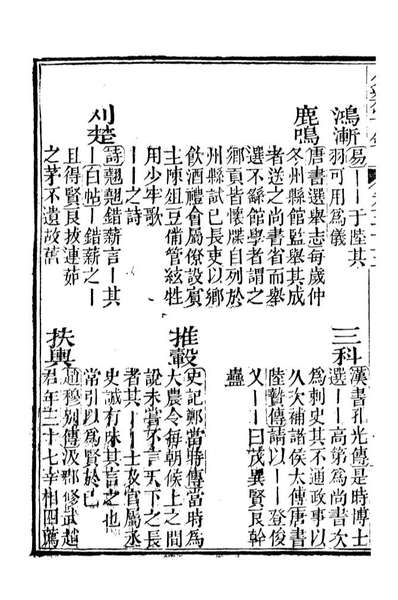 鴻漸
易｜｜于陸其
羽可用爲儀
鹿鳴
唐書選舉志每歲仲
冬州縣館監舉其成
者送之尚書省而舉
選不繇館學者謂之
鄉貢皆懷牒自列於
州縣試已長吏以鄉
飲酒禮會屬僚設賔
主陳俎豆備管絃牲
用少牢歌
｜｜之詩
刈楚
詩翹翹錯薪言｜其
｜白帖｜錯薪之｜
且得賢良拔連茹
之茅不遺故舊
三科
漢書孔光傳是時博士
選｜｜高第爲尚書次
爲刺史其不通政事以
久次補諸侯太傅唐書
陸贄傳請以｜｜登俊
乂｜｜曰茂異賢良幹
蠱
推轂
史記鄭當時傳當時爲
大農令每朝候上之間
說未嘗不言天下之長
者其｜｜士及官屬丞
史誠有味其言之也
常引以爲賢於己
扶輿
趙穆別傳汲郡修武趙
君年三十七宰相四薦